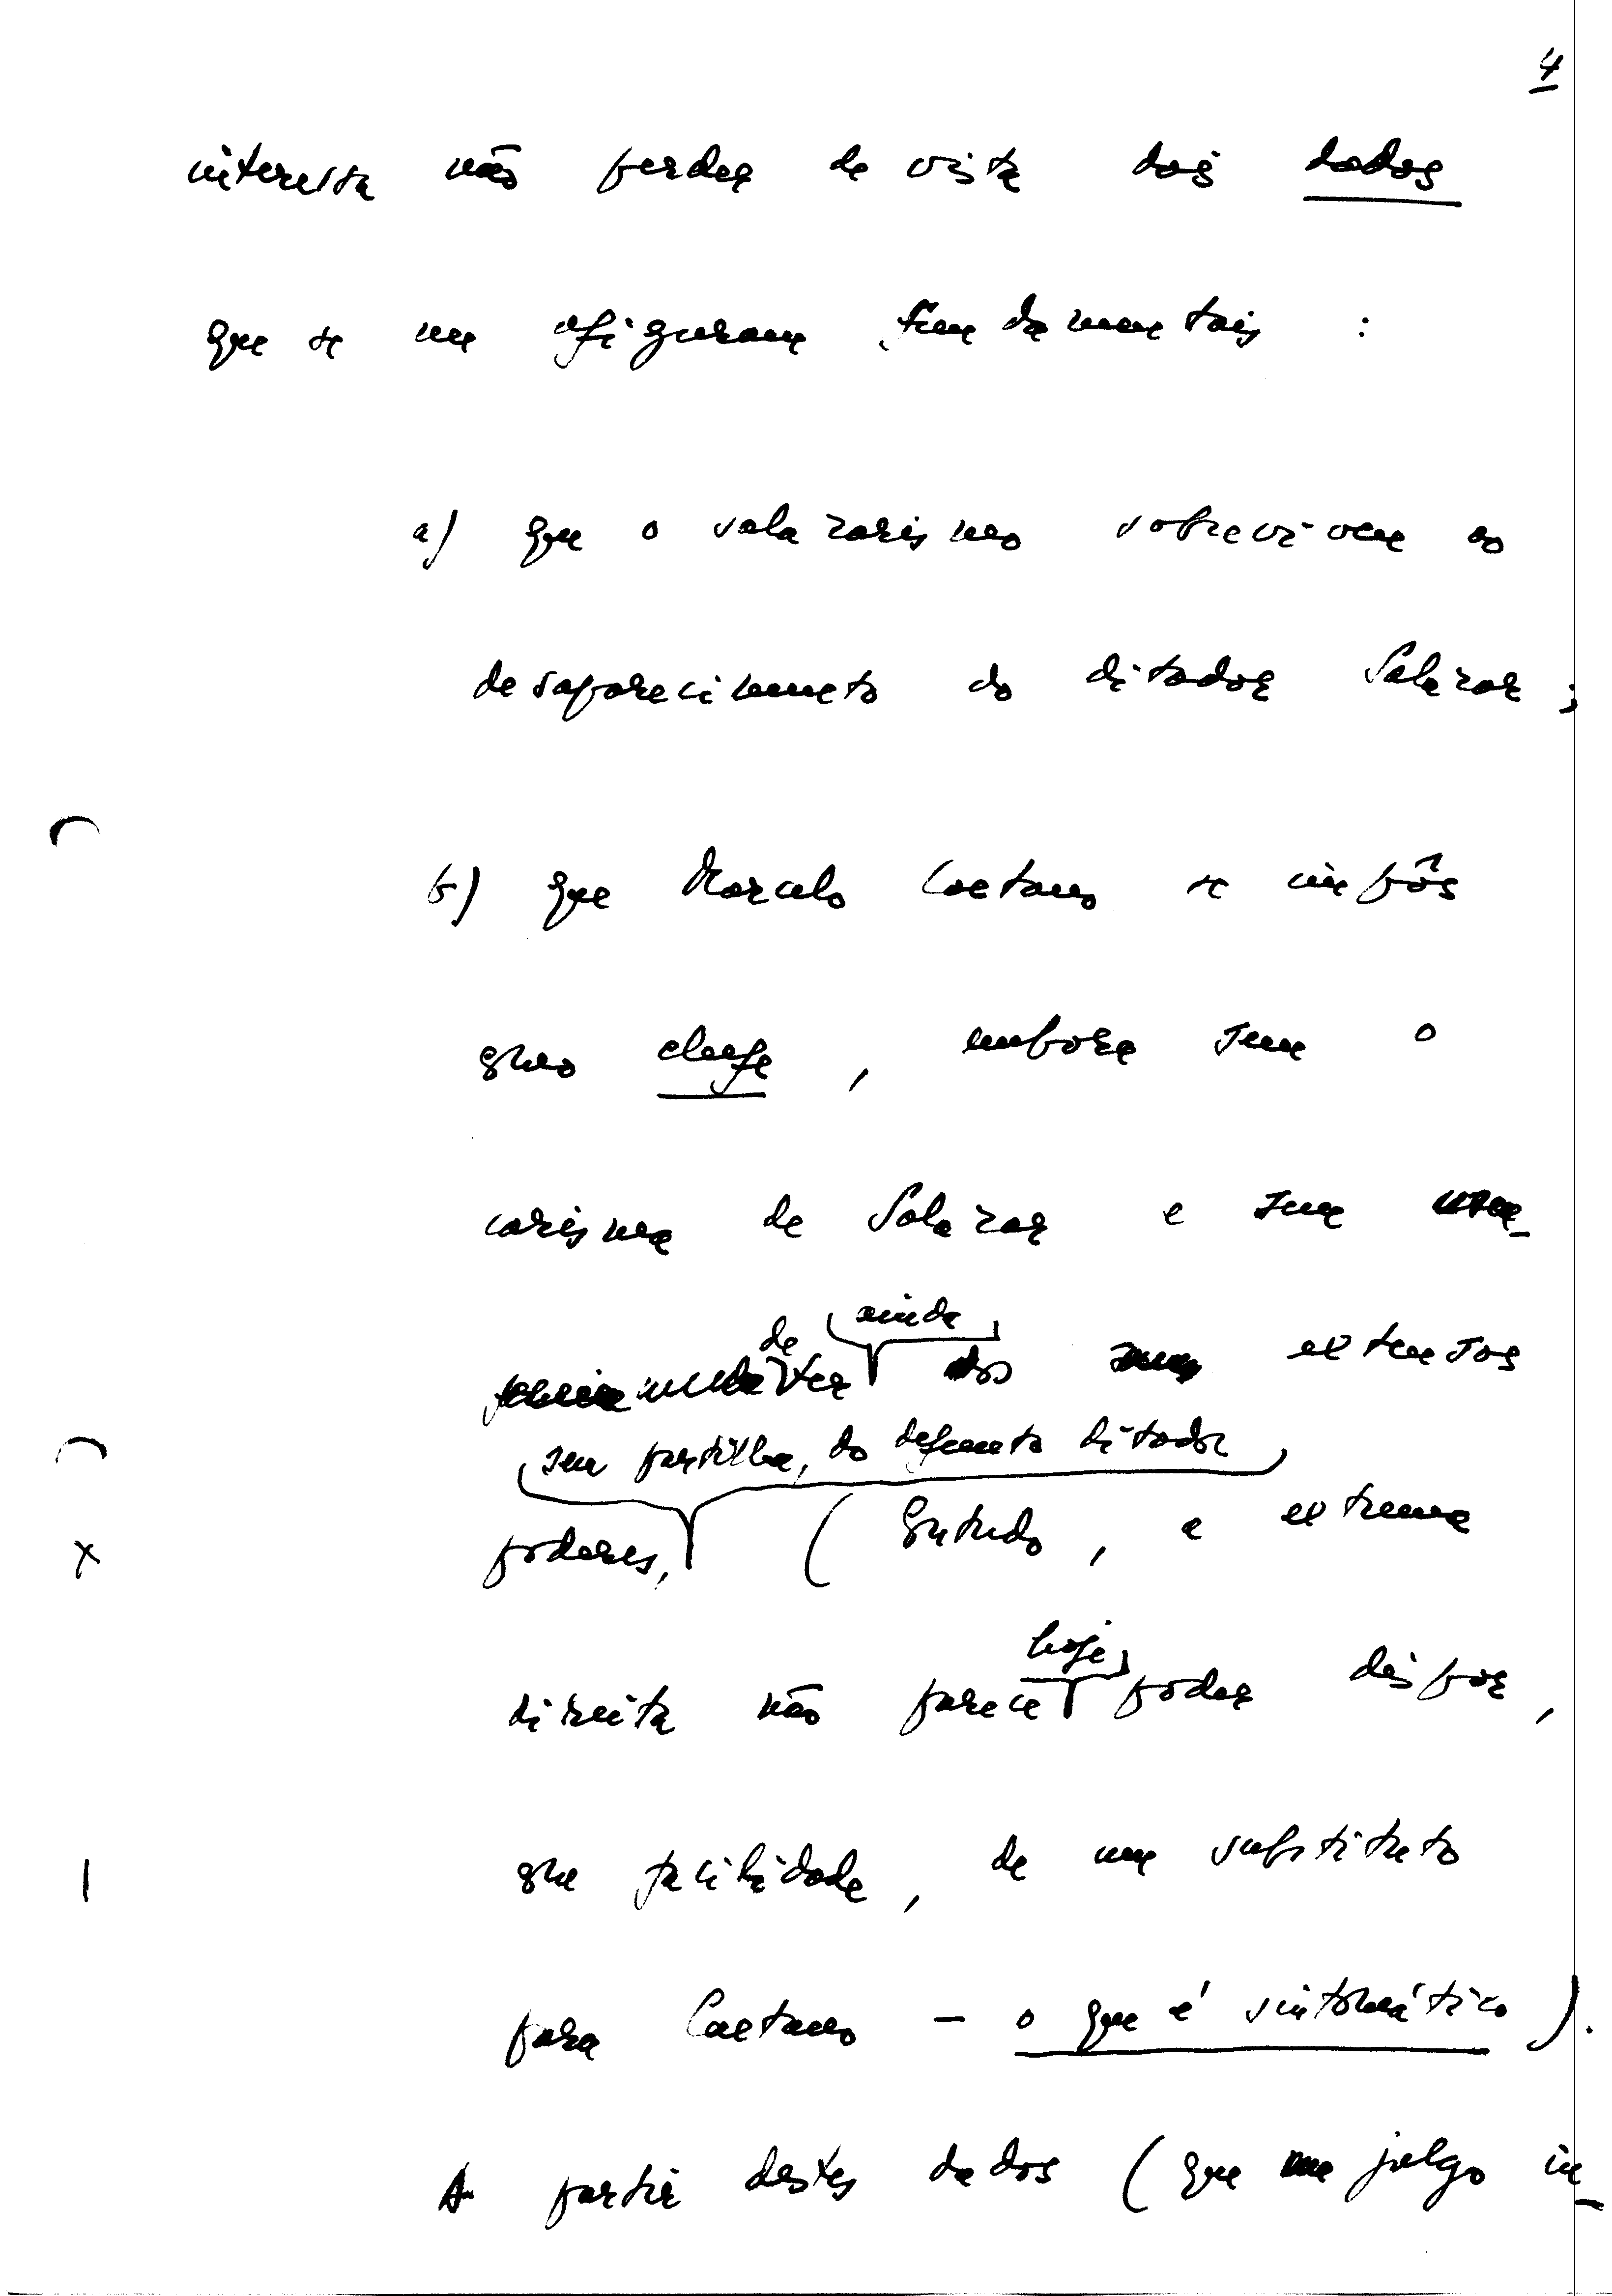 4
interessa não perder de vista dois dados
que se me afiguram fundamentais :
a) que o salazarismo sobreviveu ao
desaparecimento do ditador Salazar ;
b) que Marcelo Caetano se impôs
como chefe , embora sem o
carisma de Salazar e sem
de ainda
ter dos extensos
sem partilha, do defunto ditador
poderes, ( Contudo , a extrema
hoje
direita não parece poder dispor ,
com facilidade , de um substituto
para Caetano — o que é sintomático ) .
A partir destes dados ( que me julgo in-